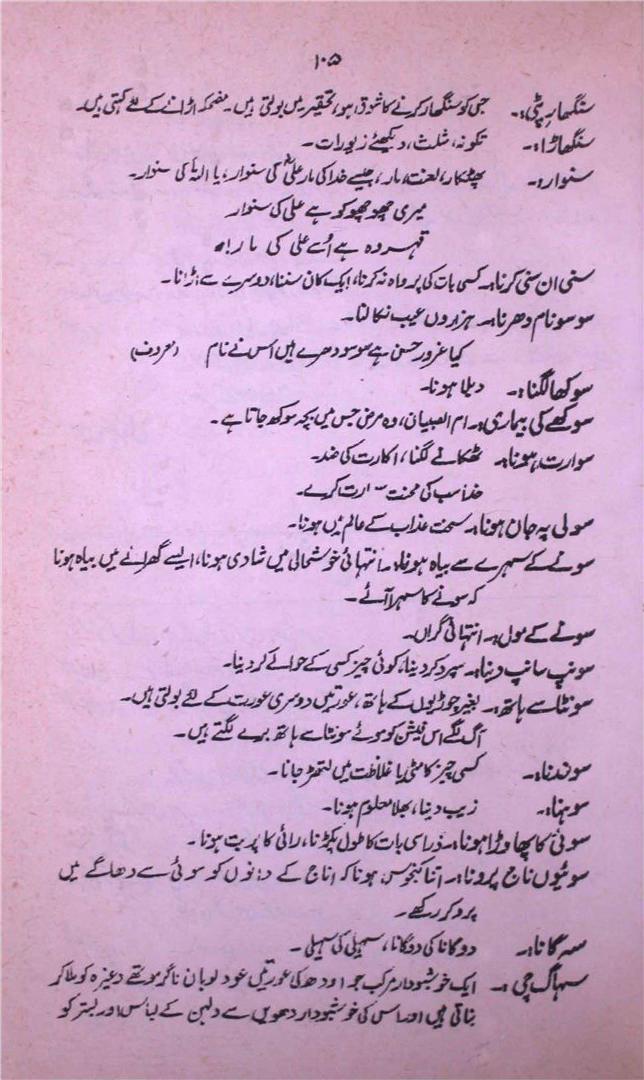 ۱۰۵
سنگھار پٹی:۔ جس کو سنگھار کرنے کا شوق ہو، تحقیر میں بولتی ہیں۔ مضحکہ اڑانے کے لئے کہتی ہیں۔
سنگھاڑا:۔ تکونہ، مثلث، دیکھئے زیورات۔
سنوار:۔ پھٹکار، لعنت، مار، جیسے خدا کی مار علیؓ کی سنوار، یا اللہ کی سنوار۔
میری چھوچھو کو ہے علی کی سنوار
قہر وہ ہے اُسے علی کی مار
سنی ان سنی کرنا:۔ کسی بات کی پرواہ نہ کرنا، ایک کان سننا، دوسرے سے اڑانا۔
سو سو نام دھرنا:۔ ہزاروں عیب نکالنا۔
کیا غرور حسن ہے سو سو دھرے ہیں اس نے نام (معروف)
سوکھا لگنا:۔ دبلا ہونا۔
سوکھے کی بیماری:۔ ام الصبیان، وہ مرض جس میں بچہ سوکھ جاتا ہے۔
سوارت ہونا:۔ ٹھکانے لگنا، اکارت کی ضد۔
خدا سب کی محنت سوارت کرے۔
سولی پہ جان ہونا:۔ سخت عذاب کے عالم میں ہونا۔
سونے کے سہرے سے بیاہ ہونا:۔ انتہائی خوشحالی میں شادی ہونا، ایسے گھرانے میں بیاہ ہونا
کہ سونے کا سہرا آئے۔
سونے کے مول:۔ انتہائی گراں۔
سونپ سانپ دینا:۔ سپرد کر دینا، کوئی چیز کسی کے حوالے کر دینا۔
سونٹا سے ہاتھ:۔ بغیر چوڑیوں کے ہاتھ، عورتیں دوسری عورت کے لئے بولتی ہیں۔
آگ لگے اس فیشن کو موئے سونٹا سے ہاتھ برے لگتے ہیں۔
سوندنا:۔ کسی چیز کا مٹی یا غلاظت میں لتھڑ جانا۔
سوہنا:۔ زیب دینا، بھلا معلوم ہونا۔
سوئی کا پھاوڑا ہونا:۔ ذراسی بات کا طول پکڑنا، رائی کا پربت ہونا۔
سوئیوں ناج پرونا:۔ اتنا کنجوس ہونا کہ اناج کے دانوں کو سوئی سے دھاگے میں
پرو کر رکھے۔
سہ گانا:۔ دوگانا کی دوگانا، سہیلی کی سہیلی۔
سہاگ چی:۔ ایک خوشبودار مرکب جو اودھ کی عورتیں عود لوبان ناگر موتھے وغیرہ کو ملا کر
بناتی ہیں اور اس کی خوشبودار دھویں سے دلہن کے لباس اور بستر کو